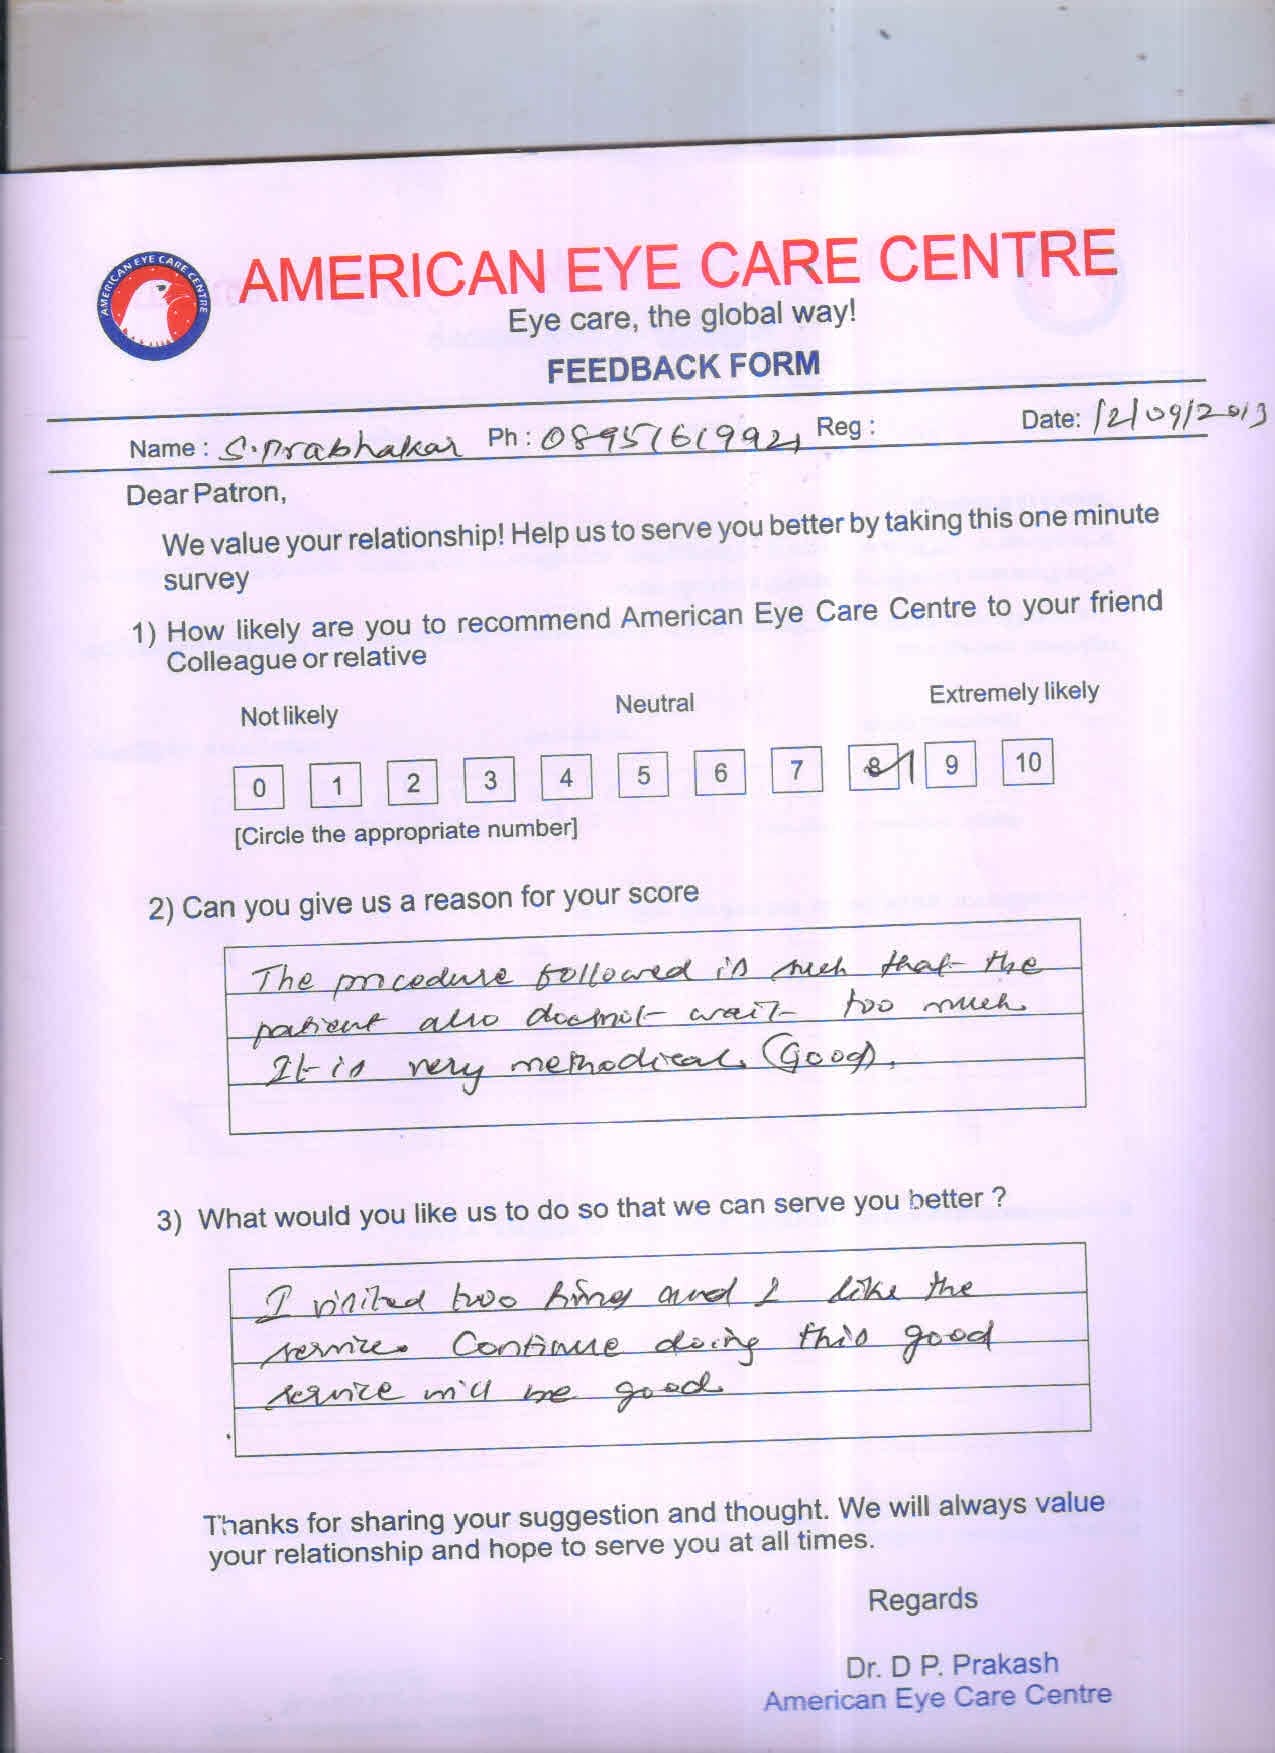 AMERICAN EYE CARE CENTRE
AMERICAN EYE CARE CENTRE
Eye care, the global way!
FEEDBACK FORM
Name : S. Prabhakar Ph : 08951619924 Reg : Date: 12/09/2013
Dear Patron,
We value your relationship! Help us to serve you better by taking this one minute
survey
1) How likely are you to recommend American Eye Care Centre to your friend
Colleague or relative
Not likely Neutral Extremely likely
0 1 2 3 4 5 6 7 8 9 10
[Circle the appropriate number]
2) Can you give us a reason for your score
The procedure followed is such that the
patient also doesnot wait too much.
It is very methodical. (Good).
3) What would you like us to do so that we can serve you better ?
I visited two times and I like the
service. Continue doing this good
service will be good.
Thanks for sharing your suggestion and thought. We will always value
your relationship and hope to serve you at all times.
Regards
Dr. D P. Prakash
American Eye Care Centre